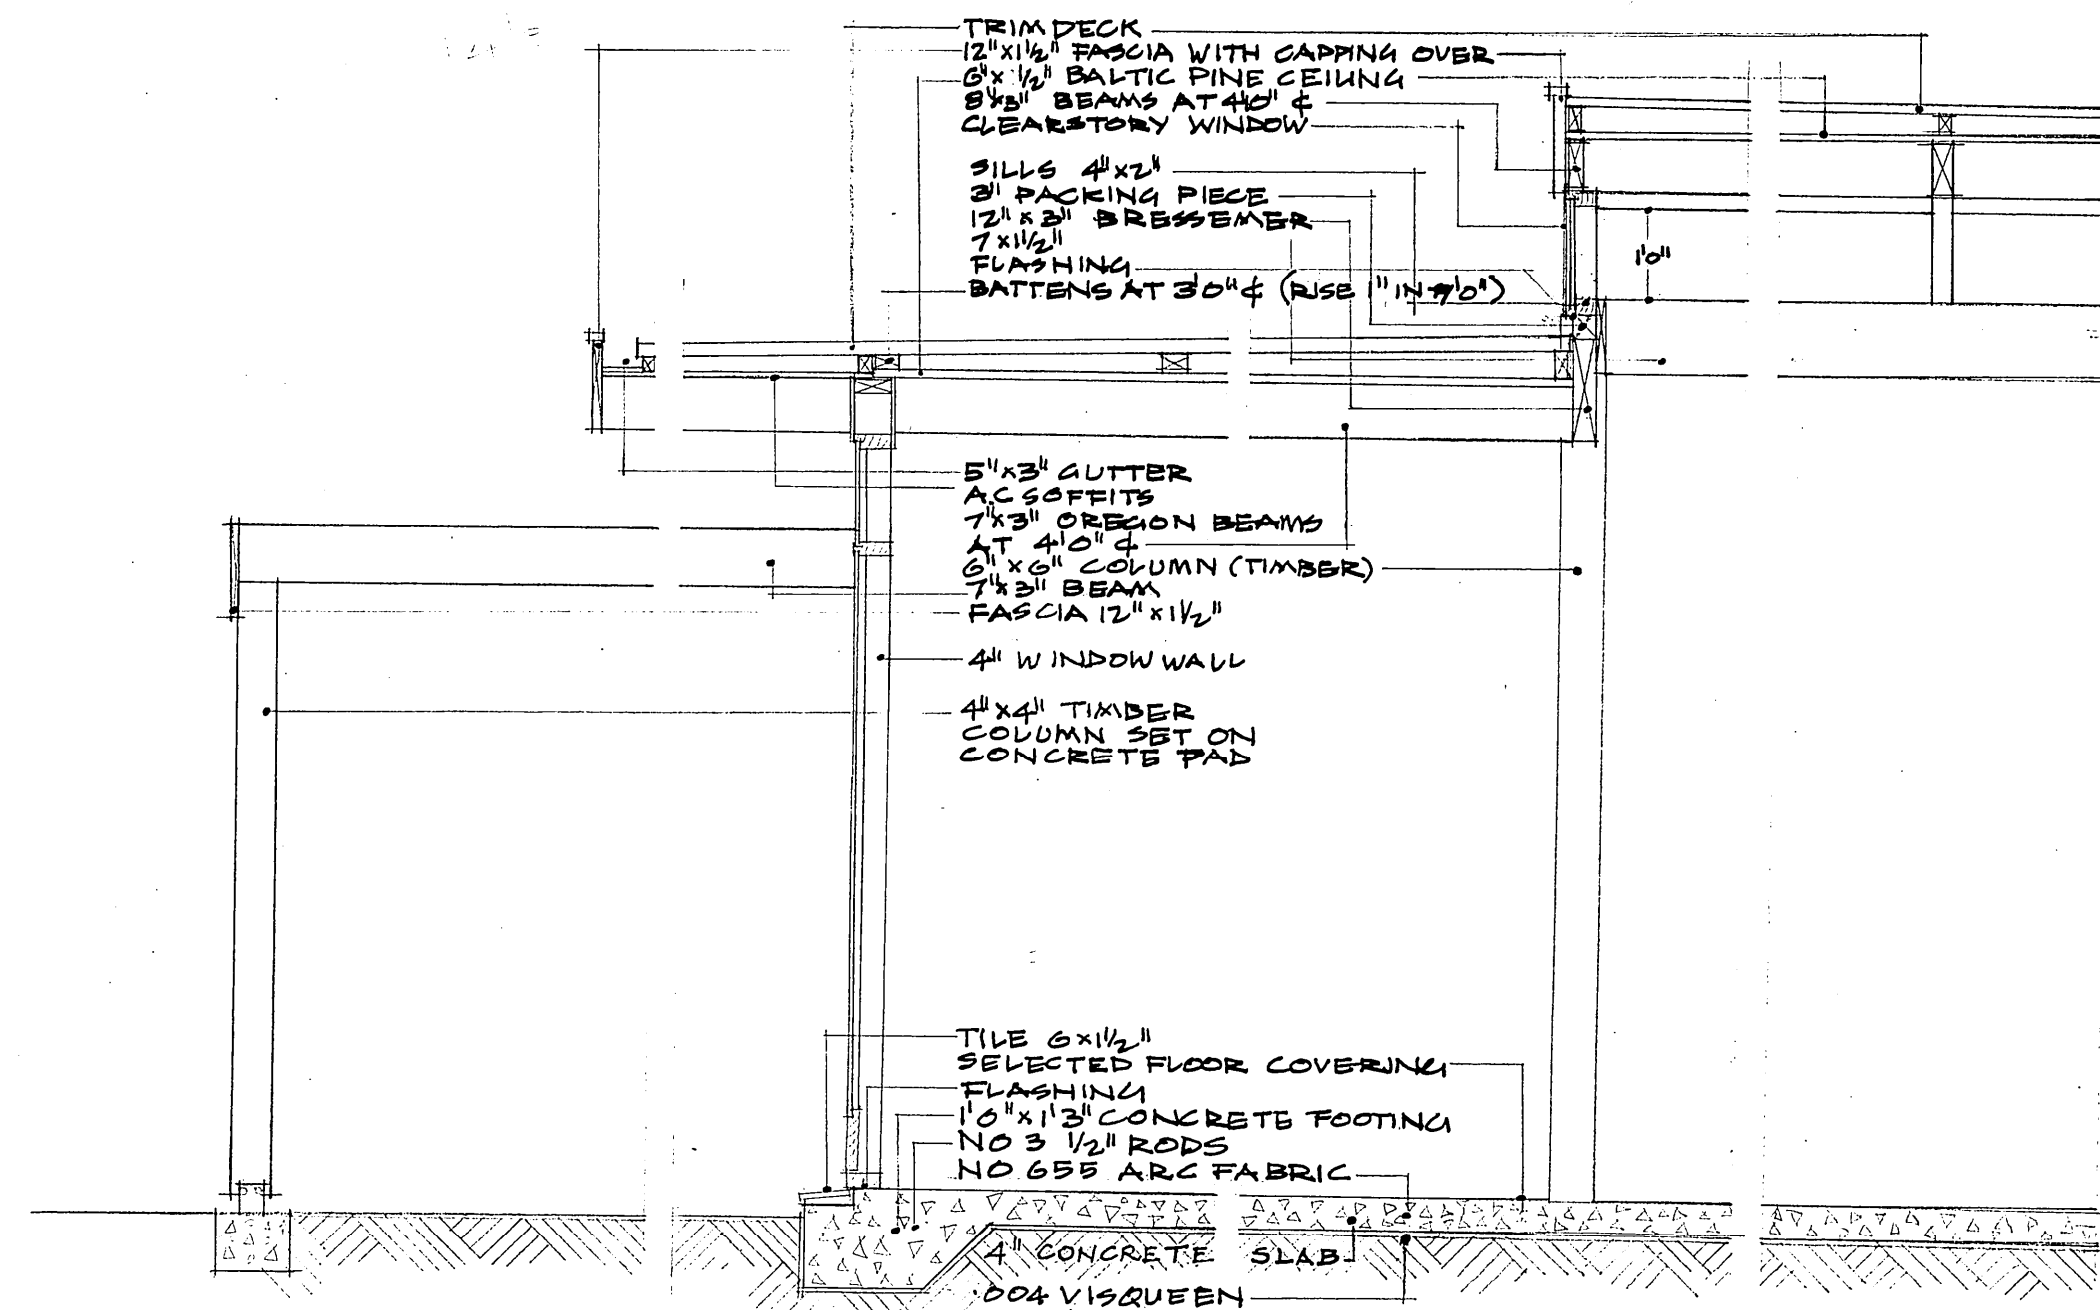 TRIM DECK
12"x1½" FASCIA WITH CAPPING OVER
6"x ½" BALTIC PINE CEILING
8"x3" BEAMS AT 4'0" ℄
CLEARSTORY WINDOW
SILLS 4"x2"
3" PACKING PIECE
12"x3" BRESSEMER
7x1½"
FLASHING
BATTENS AT 3'0" ℄ (RISE 1" IN 7'0")
1'0"
5"x3" GUTTER
A.C SOFFITS
7"x3" OREGON BEAMS
AT 4'0" ℄
6"x6" COLUMN (TIMBER)
7"x3" BEAM
FASCIA 12"x1½"
4" WINDOW WALL
4"x4" TIMBER
COLUMN SET ON
CONCRETE PAD
TILE 6x1½"
SELECTED FLOOR COVERING
FLASHING
1'6"x1'3" CONCRETE FOOTING
NO 3 ½" RODS
NO.655 ARC FABRIC
4" CONCRETE SLAB
.004 VISQUEEN